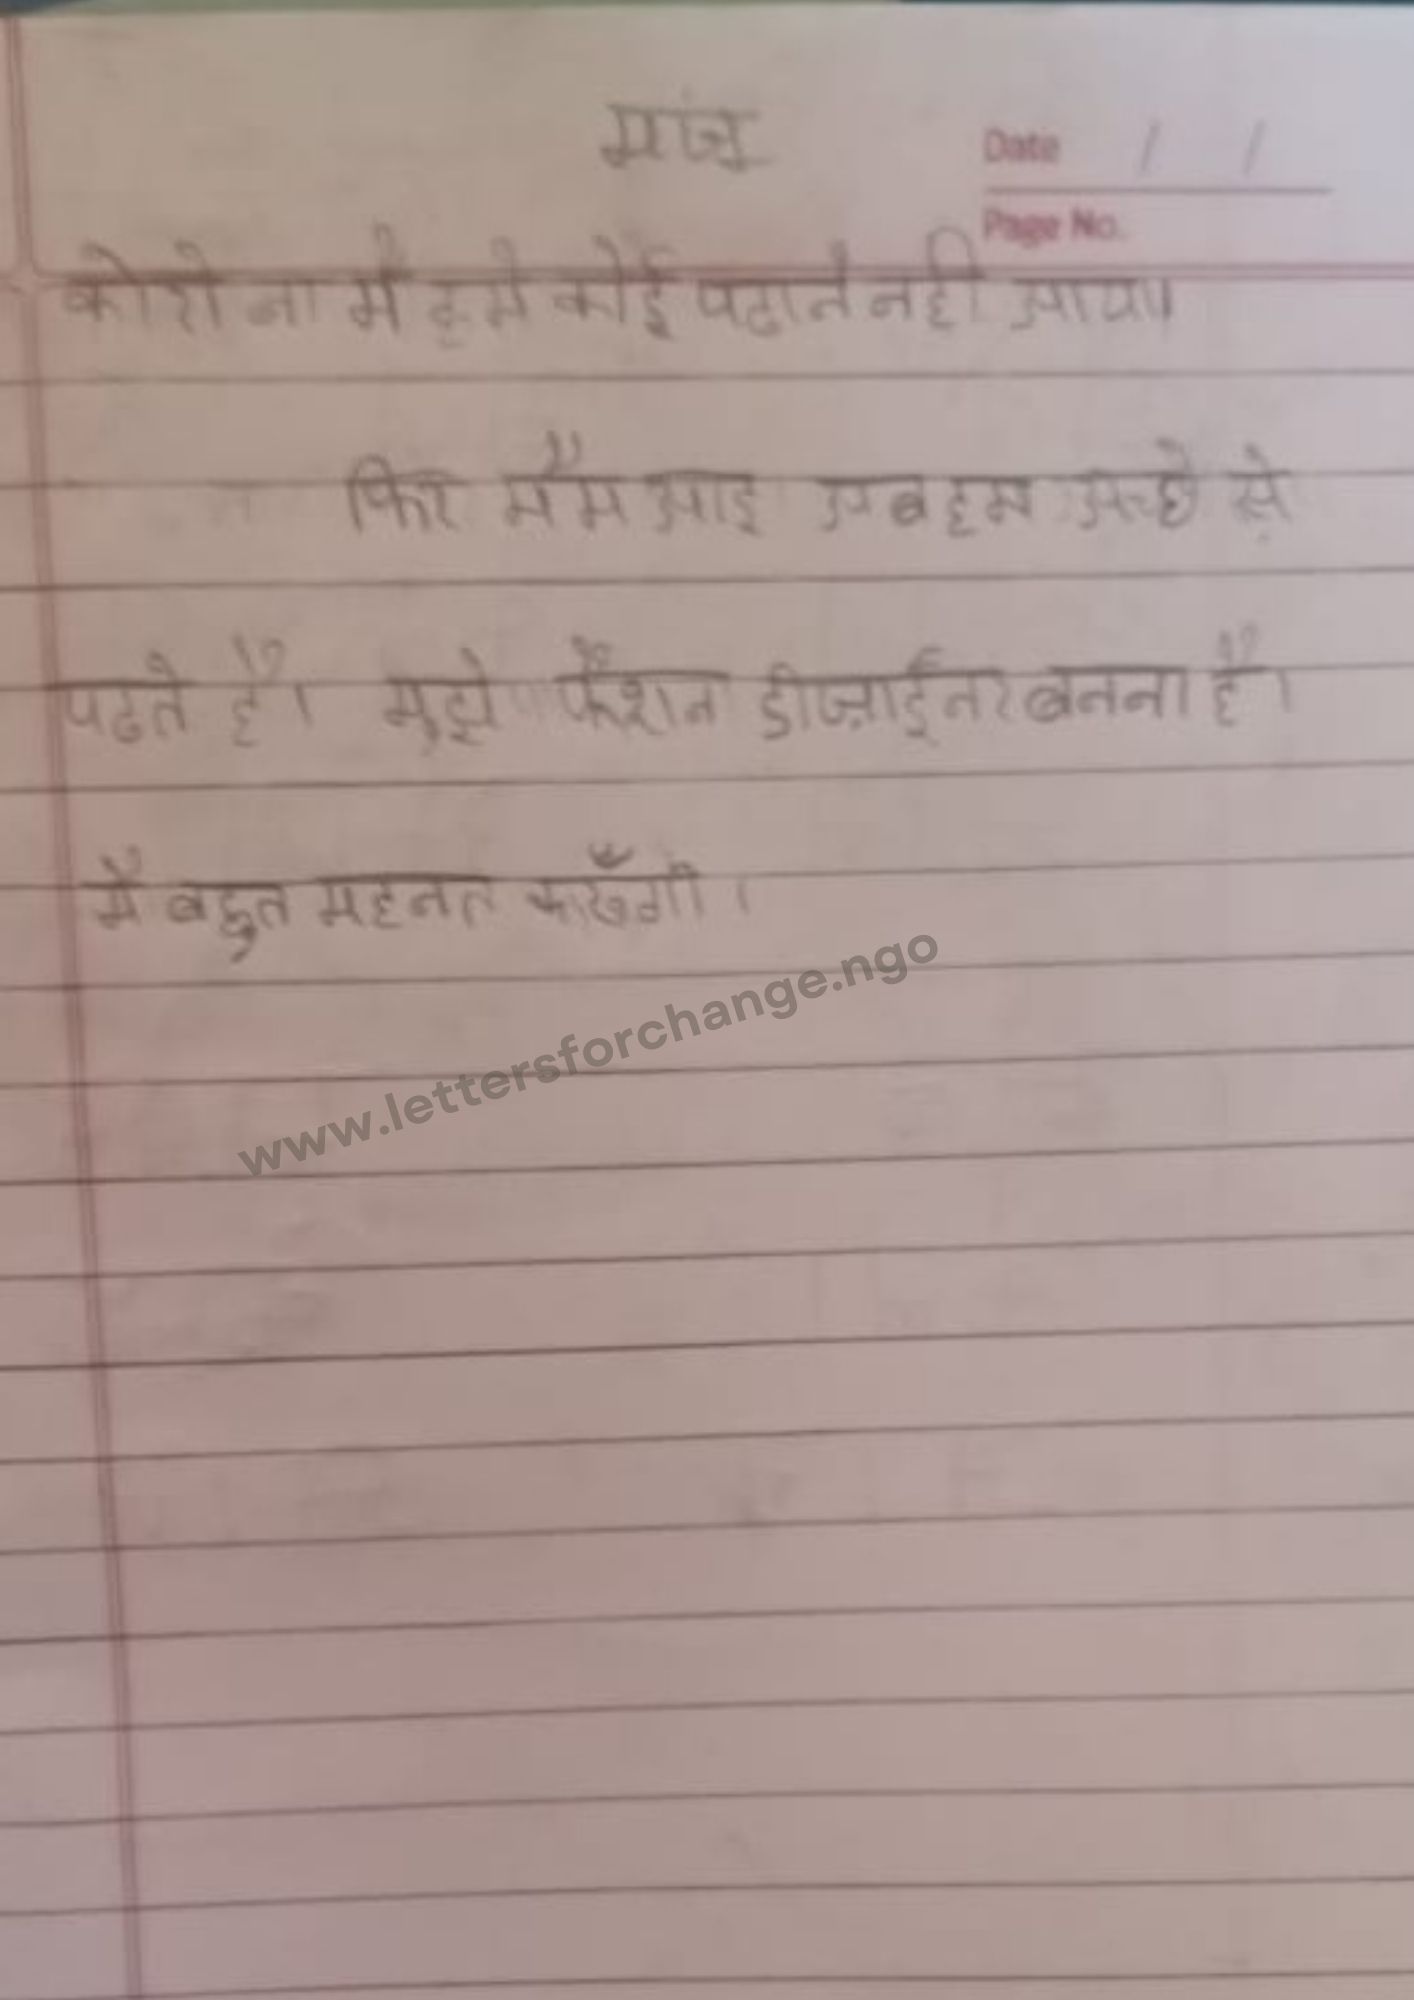 मंजू
Date / /
Page No.
कोरोना में हमे कोई पढाने नही आया।
फिर मैंम आइ अब हम अच्छे से
पढते है। मुझे फैंशन डीज़ाईनर बनना है।
मैं बहुत महनत करूँगी।
www.lettersforchange.ngo